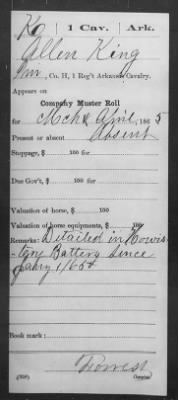 K | 1 Cav. | Ark.
Allen King
Pvt., Co. H, 1 Reg't Arkansas Cavalry.
Appears on
Company Muster Roll
for Mch & April, 1865
Present or absent Absent
Stoppage, $ 100 for
Due Gov't, $ 100 for
Valuation of horse, $ 100
Valuation of horse equipments, $ 100
Remarks: Detailed in Howis
-tone Battery since
Jany 1/65
Book mark:
Forrest
(358) Copyist.